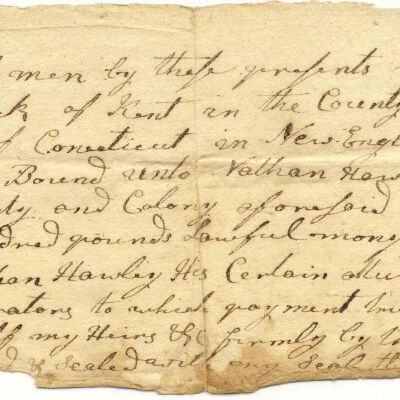 men by these presents
of Kent in the County
of Conecticut in New Engl
Bound unto Nathan Haw
ty and Colony aforesaid
dred pounds Lawful mony
han Hawley His Certain attu
rators to which payment
my Heirs &c firmly by
d & Sealed my Seal th